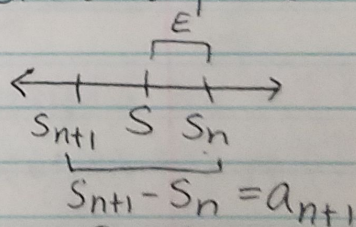 E
S_{n+1} S S_n
S_{n+1} - S_n = a_{n+1}